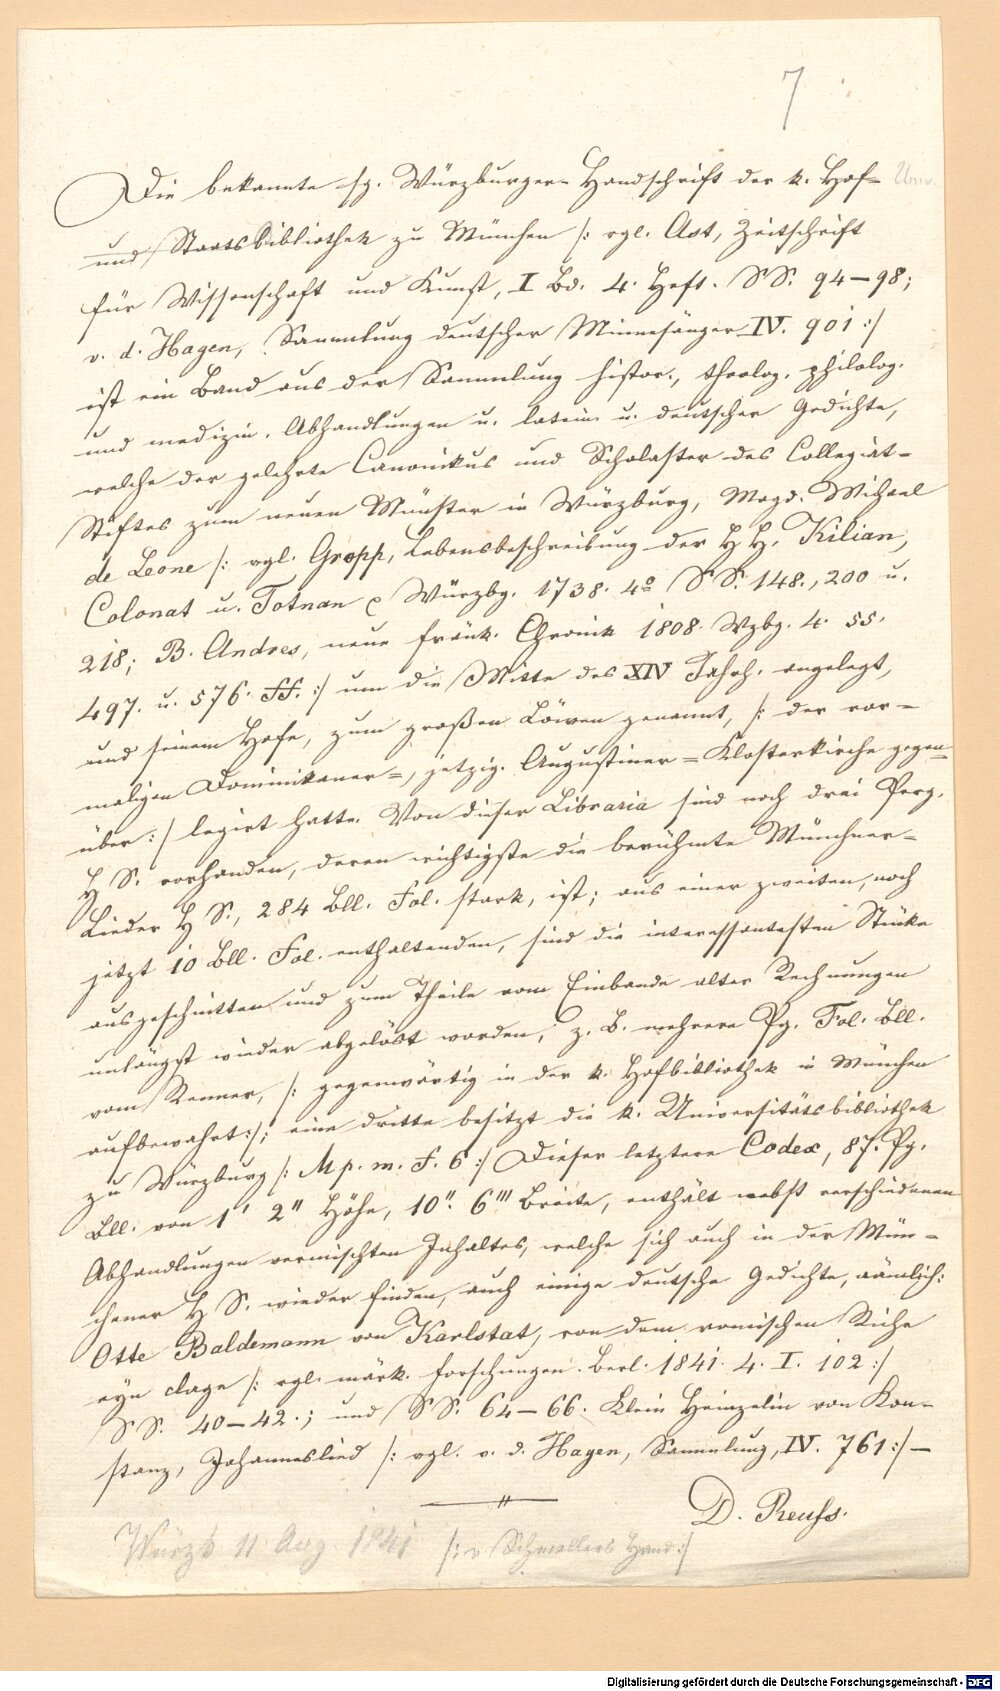 7
Die bekannte sg. Würzburger-Handschrift der k. Hof- Univ.
und Staatsbibliothek zu München /: vgl. Ast, Zeitschrift
für Wissenschaft und Kunst, I Bd. 4. Heft. SS. 94–98;
v. d. Hagen, Sammlung deutscher Minnesänger IV. 901 :/
ist ein Band aus der Sammlung histor., theolog. philolog.
und medizin. Abhandlungen u. latein. u. deutscher Gedichte,
welche der gelehrte Canonikus und Scholaster des Collegiat-
Stiftes zum neuen Münster in Würzburg, Magd. Michael
de Leone /: vgl. Gropp, Lebensbeschreibung der HH. Kilian,
Colonat u. Totnan Würzbg. 1738. 4º SS. 148., 200 u.
218; B. Andres, neue fränk. Chronik 1808. Wzbg. 4. SS.
497. u. 576. ff. :/ um die Mitte des XIV Jahrh. angelegt,
und seinem Hofe, zum großen Löwen genannt, /: der vor-
maligen Dominikaner=, jetzig. Augustiner=Klosterkirche gegen=
über :/ legirt hatte. Von dieser Libraria sind noch drei Perg.
HS. vorhanden, deren wichtigste die berühmte Münchner=
Lieder HS., 284 Bll. Fol. stark, ist; aus einer zweiten, noch
jetzt 10 Bll. Fol. enthaltenden, sind die interessantesten Stücke
ausgeschnitten und zum Theile vom Einbande alter Rechnungen
unlängst wieder abgelöst worden, z. B. mehrere Pg. Fol. Bll.
vom Renner, /: gegenwärtig in der k. Hofbibliothek in München
aufbewahrt :/; eine dritte besitzt die k. Universitätsbibliothek
zu Würzburg /: M p. m. f. 6 :/ Dieser letztere Codex, 87. Pg.
Bll. von 1' 2" Höhe, 10" 6"' Breite, enthält nebst verschiedenen
Abhandlungen vermischten Inhaltes, welche sich auch in der Mün-
chener HS. wieder finden, auch einige deutsche Gedichte, nämlich:
Otte Baldemann von Karlstat, von dem romischen Riche
eyn clage /: vgl. märk. Forschungen. Berl. 1841. 4. I. 102 :/
SS. 40–42.; und SS. 64–66. Klein Heinzelin von Kon-
stanz, Johanneslied /: vgl. v. d. Hagen, Sammlung, IV. 761 :/ –
D. Reuss.
Würzb 11 Aug 1841 /: v. Schmellers Hand :/
Digitalisierung gefördert durch die Deutsche Forschungsgemeinschaft - DFG